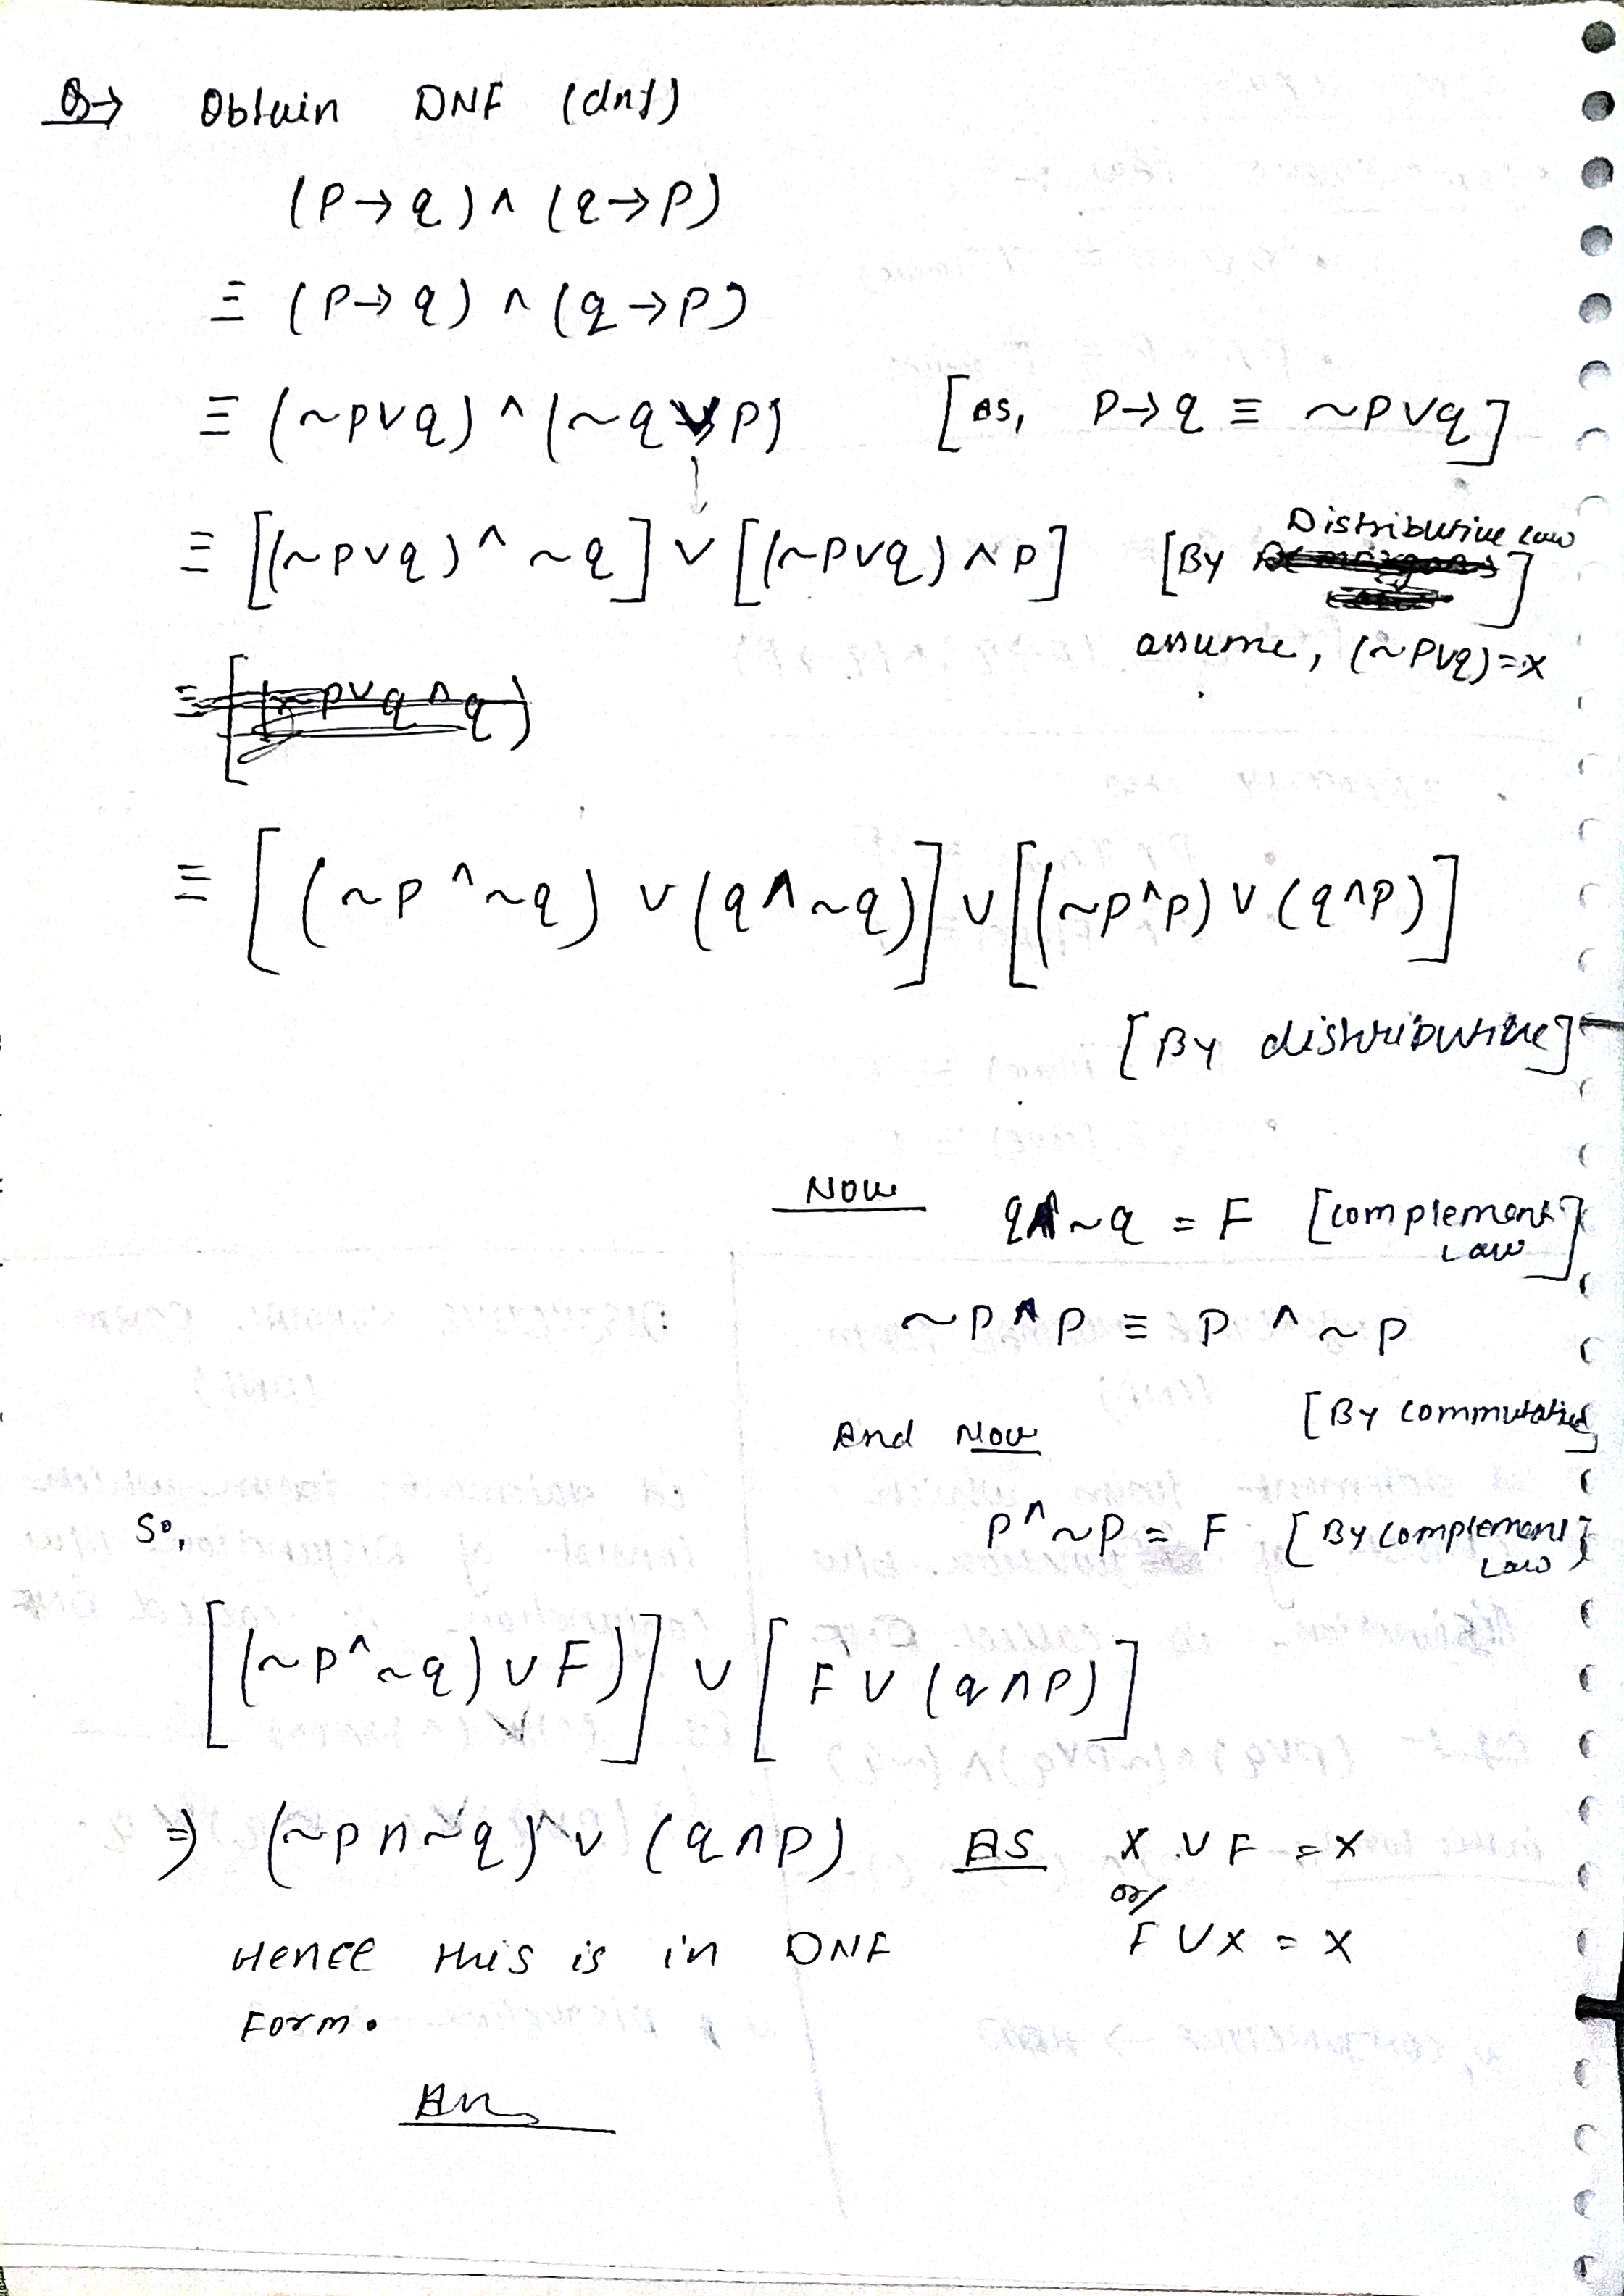 Q→ Obtain DNF (dnf)
(P→q) ∧ (q→P)
≡ (P→q) ∧ (q→P)
≡ (~p∨q) ∧ (~q∨p) [as, P→q ≡ ~P∨q]
≡ [(~p∨q) ∧ ~q] ∨ [(~p∨q) ∧ p] [By Distributive Law]
assume, (~P∨q)=x
≡ [(~p∨q∧q)
≡ [(~p ∧ ~q) ∨ (q ∧ ~q)] ∨ [(~p∧p) ∨ (q∧p)]
[By distributive]
Now q∧~q = F [complement Law]
~p∧p ≡ p ∧ ~p
[By commutative]
And Now
So, p∧~p = F [By complement Law]
[(~p∧~q) ∨ F)] ∨ [F ∨ (q∧p)]
⇒ (~p∧~q) ∨ (q∧p) AS X ∨ F = X
or
F ∨ X = X
Hence this is in DNF
Form.
Ans